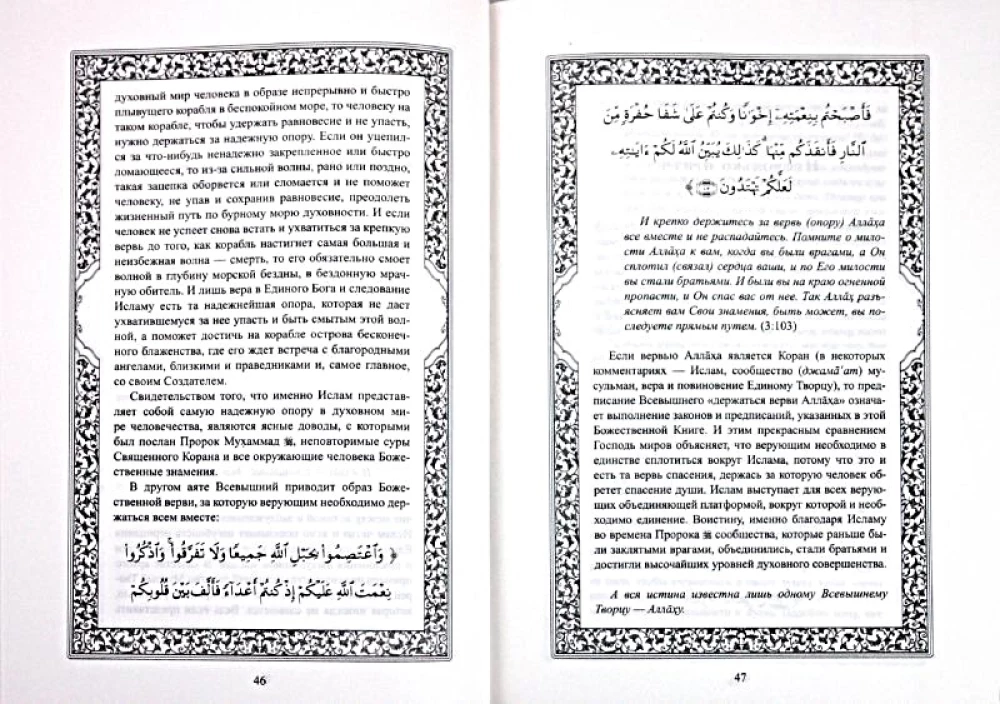 духовный мир человека в образе непрерывно и быстро
плывущего корабля в беспокойном море, то человеку на
таком корабле, чтобы удержать равновесие и не упасть,
нужно держаться за надежную опору. Если он уцепил-
ся за что-нибудь ненадежно закрепленное или быстро
ломающееся, то из-за сильной волны, рано или поздно,
такая зацепка оборвется или сломается и не поможет
человеку, не упав и сохранив равновесие, преодолеть
жизненный путь по бурному морю духовности. И если
человек не успеет снова встать и ухватиться за крепкую
вервь до того, как корабль настигнет самая большая и
неизбежная волна — смерть, то его обязательно смоет
волной в глубину морской бездны, в бездонную мрач-
ную обитель. И лишь вера в Единого Бога и следование
Исламу есть та надежнейшая опора, которая не даст
ухватившемуся за нее упасть и быть смытым этой вол-
ной, а поможет достичь на корабле острова бесконеч-
ного блаженства, где его ждет встреча с благородными
ангелами, близкими и праведниками и, самое главное,
со своим Создателем.
Свидетельством того, что именно Ислам представ-
ляет собой самую надежную опору в духовном ми-
ре человечества, являются ясные доводы, с которыми
был послан Пророк Мухаммад ﷺ, неповторимые суры
Священного Корана и все окружающие человека Боже-
ственные знамения.
В другом аяте Всевышний приводит образ Боже-
ственной верви, за которую верующим необходимо дер-
жаться всем вместе:
﴿ وَٱعْتَصِمُوا۟ بِحَبْلِ ٱللَّهِ جَمِيعًا وَلَا تَفَرَّقُوا۟ ۚ وَٱذْكُرُوا۟
نِعْمَتَ ٱللَّهِ عَلَيْكُمْ إِذْ كُنتُمْ أَعْدَآءً فَأَلَّفَ بَيْنَ قُلُوبِكُمْ
46
فَأَصْبَحْتُم بِنِعْمَتِهِۦٓ إِخْوَٰنًا وَكُنتُمْ عَلَىٰ شَفَا حُفْرَةٍ مِّنَ
ٱلنَّارِ فَأَنقَذَكُم مِّنْهَا ۗ كَذَٰلِكَ يُبَيِّنُ ٱللَّهُ لَكُمْ ءَايَٰتِهِۦ
لَعَلَّكُمْ تَهْتَدُونَ ١٠٣ ﴾
И крепко держитесь за вервь (опору) Алла̄ха
все вместе и не распадайтесь. Помните о мило-
сти Алла̄ха к вам, когда вы были врагами, а Он
сплотил (связал) сердца ваши, и по Его милости
вы стали братьями. И были вы на краю огненной
пропасти, и Он спас вас от нее. Так Алла̄х разъ-
ясняет вам Свои знамения, быть может, вы по-
следуете прямым путем. (3:103)
Если вервью Алла̄ха является Коран (в некоторых
комментариях — Ислам, сообщество (джама̄‘ат) му-
сульман, вера и повиновение Единому Творцу), то пред-
писание Всевышнего «держаться верви Алла̄ха» означа-
ет выполнение законов и предписаний, указанных в этой
Божественной Книге. И этим прекрасным сравнением
Господь миров объясняет, что верующим необходимо в
единстве сплотиться вокруг Ислама, потому что это и
есть та вервь спасения, держась за которую человек об-
ретет спасение души. Ислам выступает для всех верую-
щих объединяющей платформой, вокруг которой и необ-
ходимо единение. Воистину, именно благодаря Исламу
во времена Пророка ﷺ сообщества, которые раньше бы-
ли заклятыми врагами, объединились, стали братьями и
достигли высочайших уровней духовного совершенства.
А вся истина известна лишь одному Всевышнему
Творцу — Алла̄ху.
47